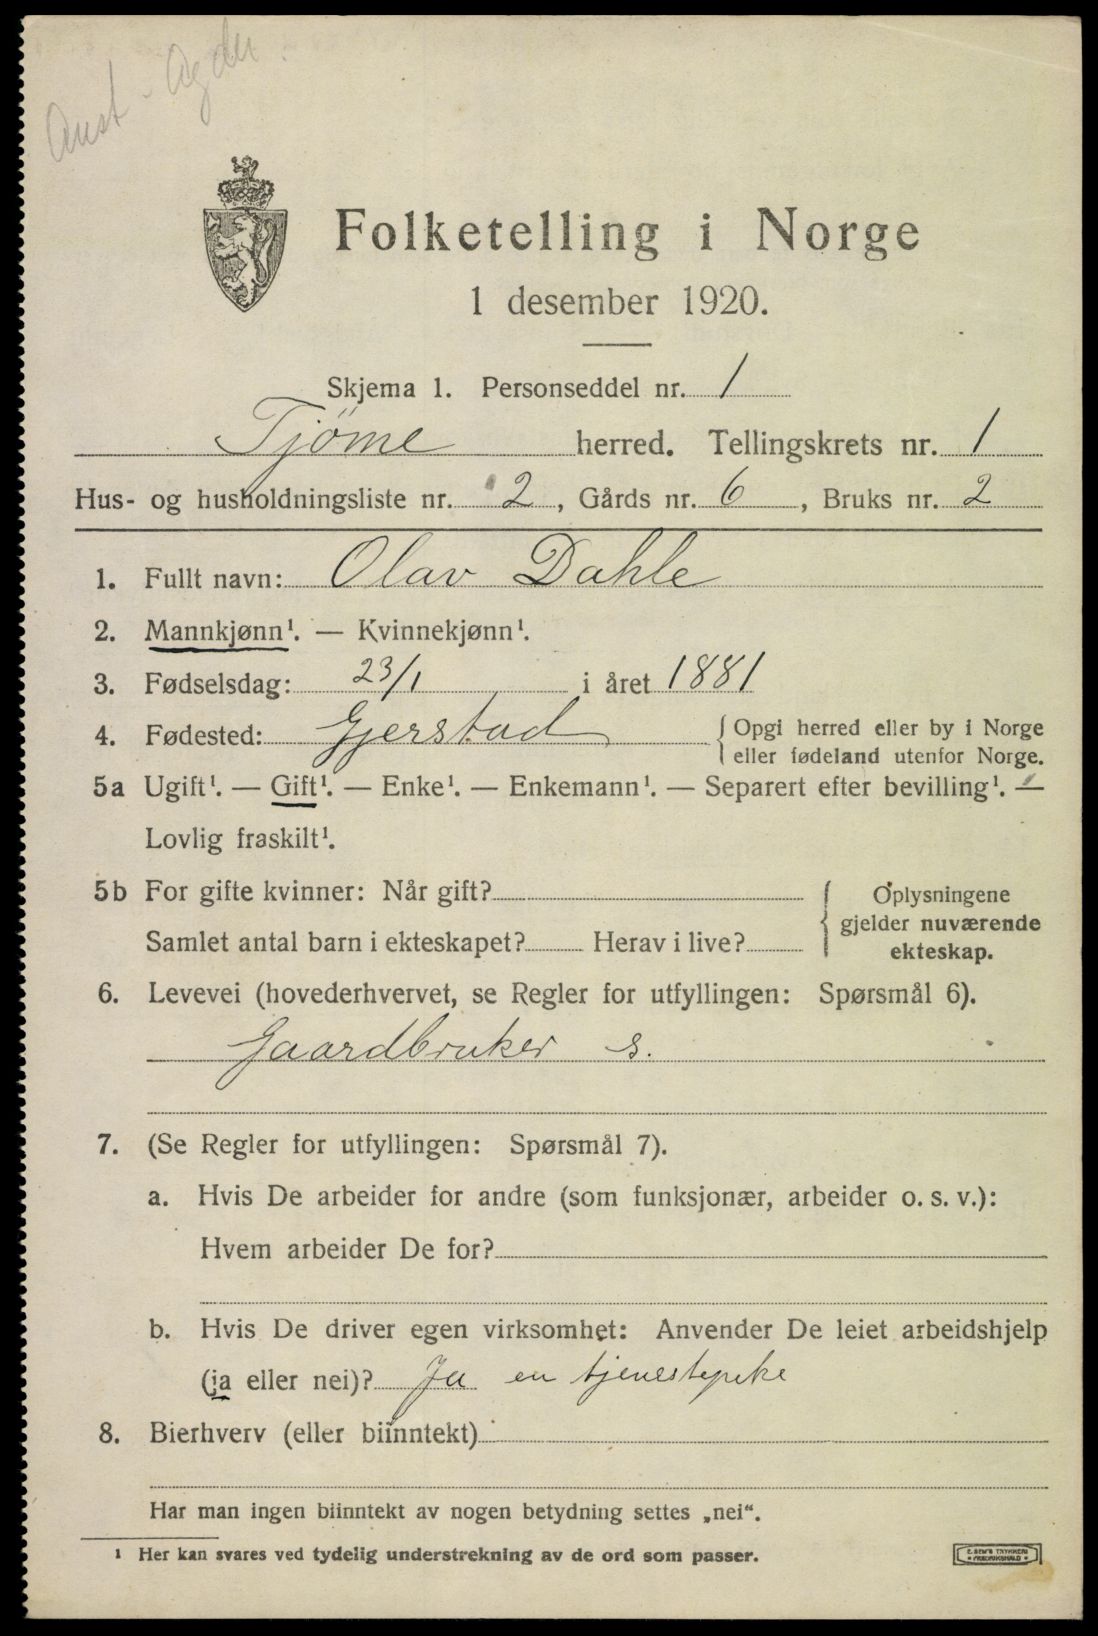 Aust-Agder.
Folketelling i Norge
1 desember 1920.
Skjema 1. Personseddel nr. 1
Tjöme herred. Tellingskrets nr. 1
Hus- og husholdningsliste nr. 2, Gårds nr. 6, Bruks nr. 2
1. Fullt navn: Olav Dahle
2. Mannkjønn¹. — Kvinnekjønn¹.
3. Fødselsdag: 23/1 i året 1881
4. Fødested: Gjerstad { Opgi herred eller by i Norge
eller fødeland utenfor Norge.
5a Ugift¹. — Gift¹. — Enke¹. — Enkemann¹. — Separert efter bevilling¹. —
Lovlig fraskilt¹.
5b For gifte kvinner: Når gift?
Samlet antal barn i ekteskapet? Herav i live?
{ Oplysningene
gjelder nuværende
ekteskap.
6. Levevei (hovederhvervet, se Regler for utfyllingen: Spørsmål 6).
Gaardbruker s.
7. (Se Regler for utfyllingen: Spørsmål 7).
a. Hvis De arbeider for andre (som funksjonær, arbeider o. s. v.):
Hvem arbeider De for?
b. Hvis De driver egen virksomhet: Anvender De leiet arbeidshjelp
(ja eller nei)? Ja en tjenestepike
8. Bierhverv (eller biinntekt)
Har man ingen biinntekt av nogen betydning settes „nei“.
¹ Her kan svares ved tydelig understrekning av de ord som passer.
E. SEM'S TRYKKERI
• FREDRIKSHALD •